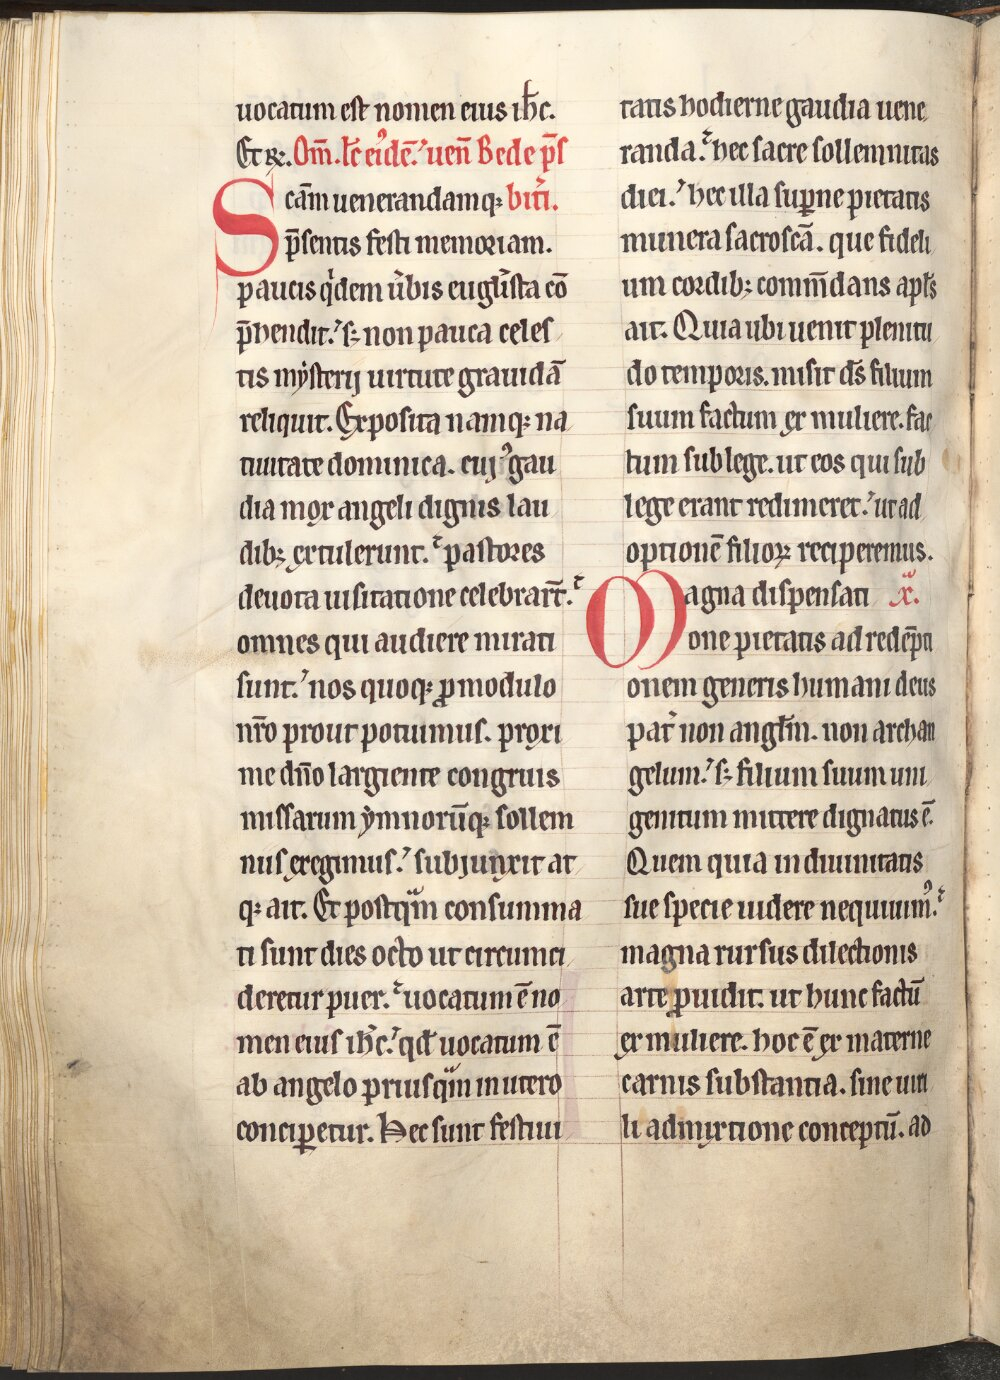 uocatum est nomen eius ih̅c.
Et R̷. Om̅. lc̅ eide̅. uen̅ Bede p̅s
Sca̅m uenerandamq; biti̅.
p̅sentis festi memoriam.
paucis qͥdem u̅bis eugl̅ista co̅
p̅hendit. s; non pauca celes
tis mẏsterij uirtute grauida̅
reliquit. Exposita namq; na
tiuitate dominica. cuj᾽ gau
dia mox angeli dignis lau
dib; extulerunt. pastores
deuota uisitatione celebrar̅t.
omnes qui audiere mirati
sunt. nos quoq; ꝓ modulo
nr̅o prout potuimus. proxi
me dn̅o largiente congruis
missarum ẏmnoru̅q; sollem
niis exegimus. subjunxit at
q; ait. Et postqᵃm consumma
ti sunt dies octo ut circumci
deretur puer. uocatum e̅ no
men eius ih̅c. qd̅ uocatum e̅
ab angelo priusqᵃm in utero
conciꝑetur. Hec sunt festiui
tatis hodierne gaudia uene
randa. hec sacre sollemnitas
diei. hec illa suꝑne pietatis
munera sacrosca̅. que fideli
um cordib; comm̅dans apl̅s
ait. Quia ubi uenit plenitu
do temporis. misit ds̅ filium
suum factum ex muliere. fac
tum sub lege. ut eos qui sub
lege erant redimeret. ut ad
optione̅ filioꝝ reciperemus.
Magna dispensati x.
one pietatis ad rede̅pti
onem generis humani deus
pat̅ non angl̅m. non archan
gelum. s; filium suum uni
genitum mittere dignatus e̅.
Quem quia in diuinitatis
sue specie uidere nequiuim᾽.
magna rursus dilectionis
arte ꝓuidit. ut hunc factu̅
ex muliere. hoc e̅ ex materne
carnis substantia. sine uiri
li admixtione conceptu̅. ad